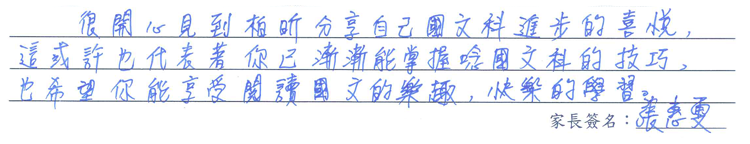 很開心見到柏昕分享自己國文科進步的喜悅，
這或許也代表著你已漸漸能掌握唸國文科的技巧，
也希望你能享受閱讀國文的樂趣，快樂的學習。
家長簽名：張惠雯